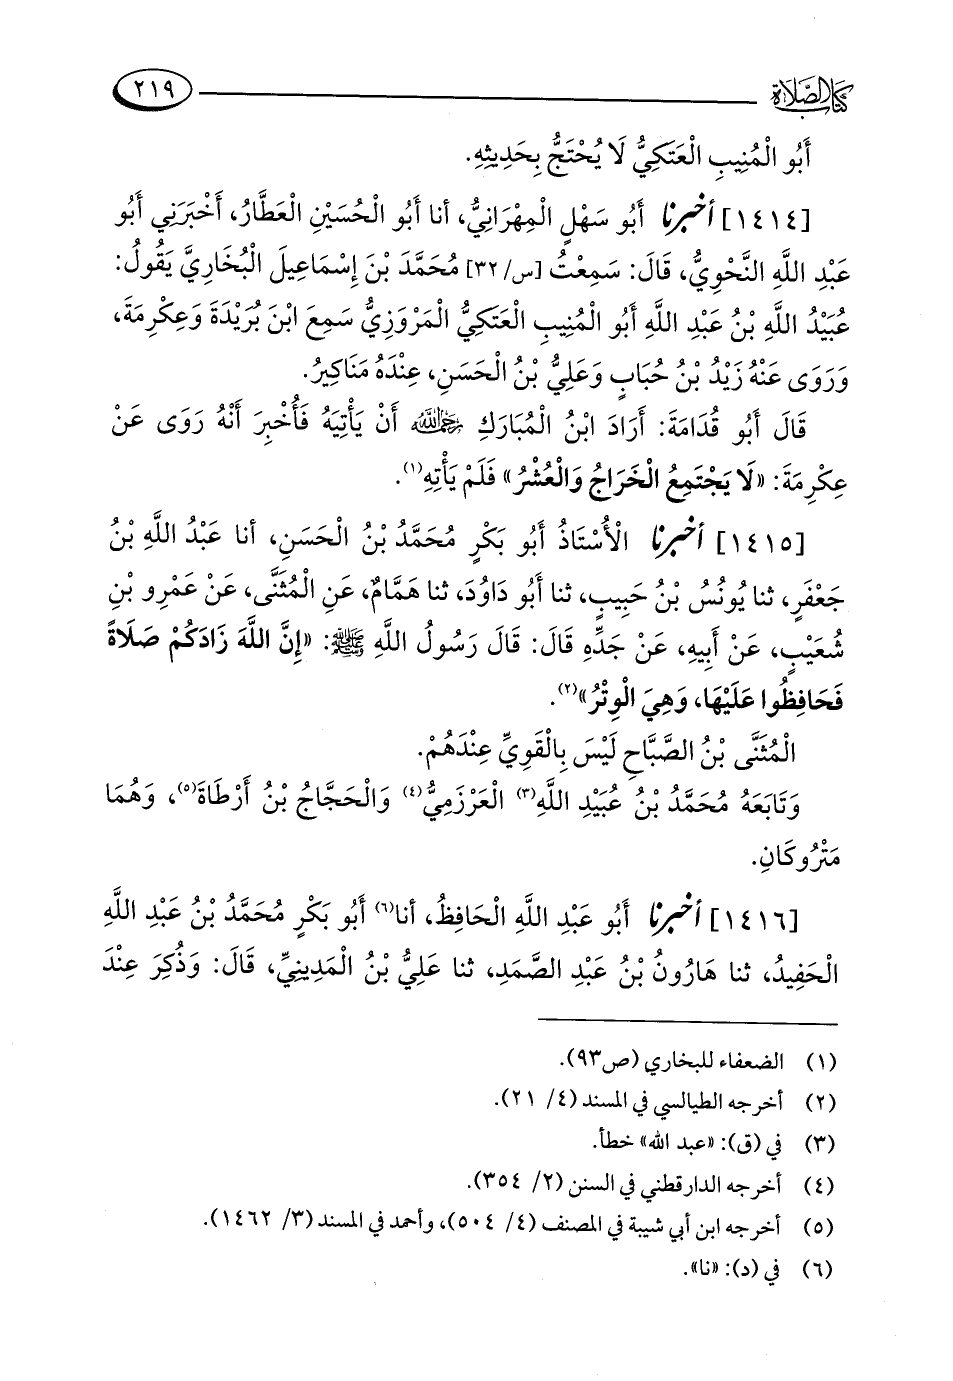 كتاب الصلاة
٢١٩
أَبُو الْمُنِيبِ الْعَتَكِيُّ لَا يُحْتَجُّ بِحَدِيثِهِ.
[١٤١٤] أخبرنا أَبُو سَهْلٍ الْمِهْرَانِيُّ، أنا أَبُو الْحُسَيْنِ الْعَطَّارُ، أَخْبَرَنِي أَبُو
عَبْدِ اللَّهِ النَّحْوِيُّ، قَالَ: سَمِعْتُ [س/٣٢] مُحَمَّدَ بْنَ إِسْمَاعِيلَ الْبُخَارِيَّ يَقُولُ:
عُبَيْدُ اللَّهِ بْنُ عَبْدِ اللَّهِ أَبُو الْمُنِيبِ الْعَتَكِيُّ الْمَرْوَزِيُّ سَمِعَ ابْنَ بُرَيْدَةَ وَعِكْرِمَةَ،
وَرَوَى عَنْهُ زَيْدُ بْنُ حُبَابٍ وَعَلِيُّ بْنُ الْحَسَنِ، عِنْدَهُ مَنَاكِيرُ.
قَالَ أَبُو قُدَامَةَ: أَرَادَ ابْنُ الْمُبَارَكِ رحمه الله أَنْ يَأْتِيَهُ فَأُخْبِرَ أَنَّهُ رَوَى عَنْ
عِكْرِمَةَ: «لَا يَجْتَمِعُ الْخَرَاجُ وَالْعُشْرُ» فَلَمْ يَأْتِهِ(١).
[١٤١٥] أخبرنا الْأُسْتَاذُ أَبُو بَكْرٍ مُحَمَّدُ بْنُ الْحَسَنِ، أنا عَبْدُ اللَّهِ بْنُ
جَعْفَرٍ، ثنا يُونُسُ بْنُ حَبِيبٍ، ثنا أَبُو دَاوُدَ، ثنا هَمَّامٌ، عَنِ الْمُثَنَّى، عَنْ عَمْرِو بْنِ
شُعَيْبٍ، عَنْ أَبِيهِ، عَنْ جَدِّهِ قَالَ: قَالَ رَسُولُ اللَّهِ ﷺ: «إِنَّ اللَّهَ زَادَكُمْ صَلَاةً
فَحَافِظُوا عَلَيْهَا، وَهِيَ الْوِتْرُ»(٢).
الْمُثَنَّى بْنُ الصَّبَّاحِ لَيْسَ بِالْقَوِيِّ عِنْدَهُمْ.
وَتَابَعَهُ مُحَمَّدُ بْنُ عُبَيْدِ اللَّهِ(٣) الْعَرْزَمِيُّ(٤) وَالْحَجَّاجُ بْنُ أَرْطَاةَ(٥)، وَهُمَا
مَتْرُوكَانِ.
[١٤١٦] أخبرنا أَبُو عَبْدِ اللَّهِ الْحَافِظُ، أنا(٦) أَبُو بَكْرٍ مُحَمَّدُ بْنُ عَبْدِ اللَّهِ
الْحَفِيدُ، ثنا هَارُونُ بْنُ عَبْدِ الصَّمَدِ، ثنا عَلِيُّ بْنُ الْمَدِينِيِّ، قَالَ: وَذُكِرَ عِنْدَ
(١) الضعفاء للبخاري (ص٩٣).
(٢) أخرجه الطيالسي في المسند (٤/ ٢١).
(٣) في (ق): «عبد الله» خطأ.
(٤) أخرجه الدارقطني في السنن (٢/ ٣٥٤).
(٥) أخرجه ابن أبي شيبة في المصنف (٤/ ٥٠٤)، وأحمد في المسند (٣/ ١٤٦٢).
(٦) في (د): «نا».